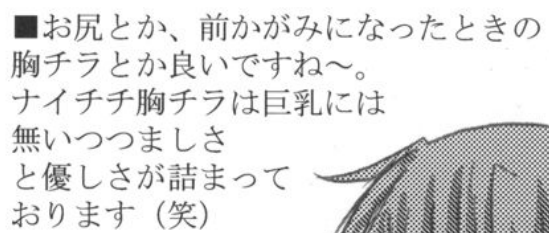 ■お尻とか、前かがみになったときの
胸チラとか良いですね～。
ナイチチ胸チラは巨乳には
無いつつましさ
と優しさが詰まって
おります（笑）